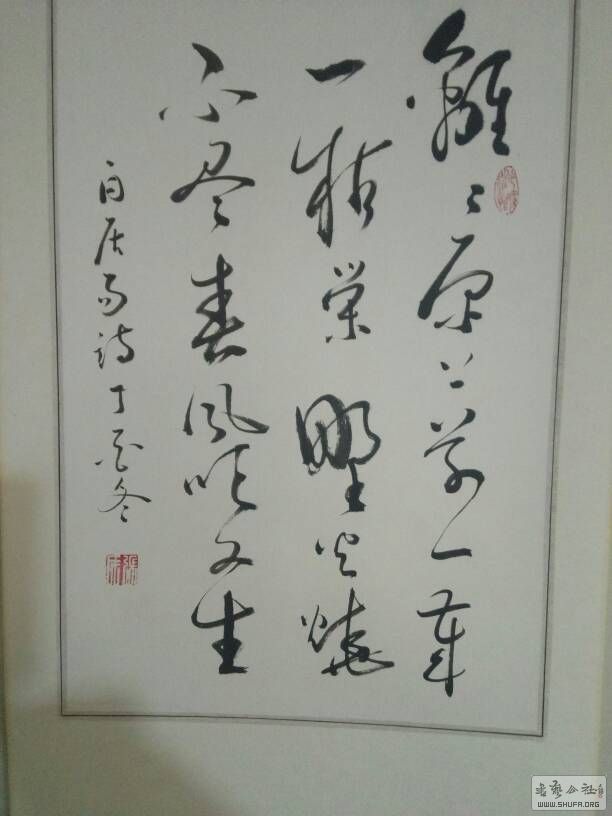 離々原上草一歲
一枯榮野火燒
不尽春風吹又生
白居易詩丁酉冬
書藝公社
WWW.SHUFA.ORG